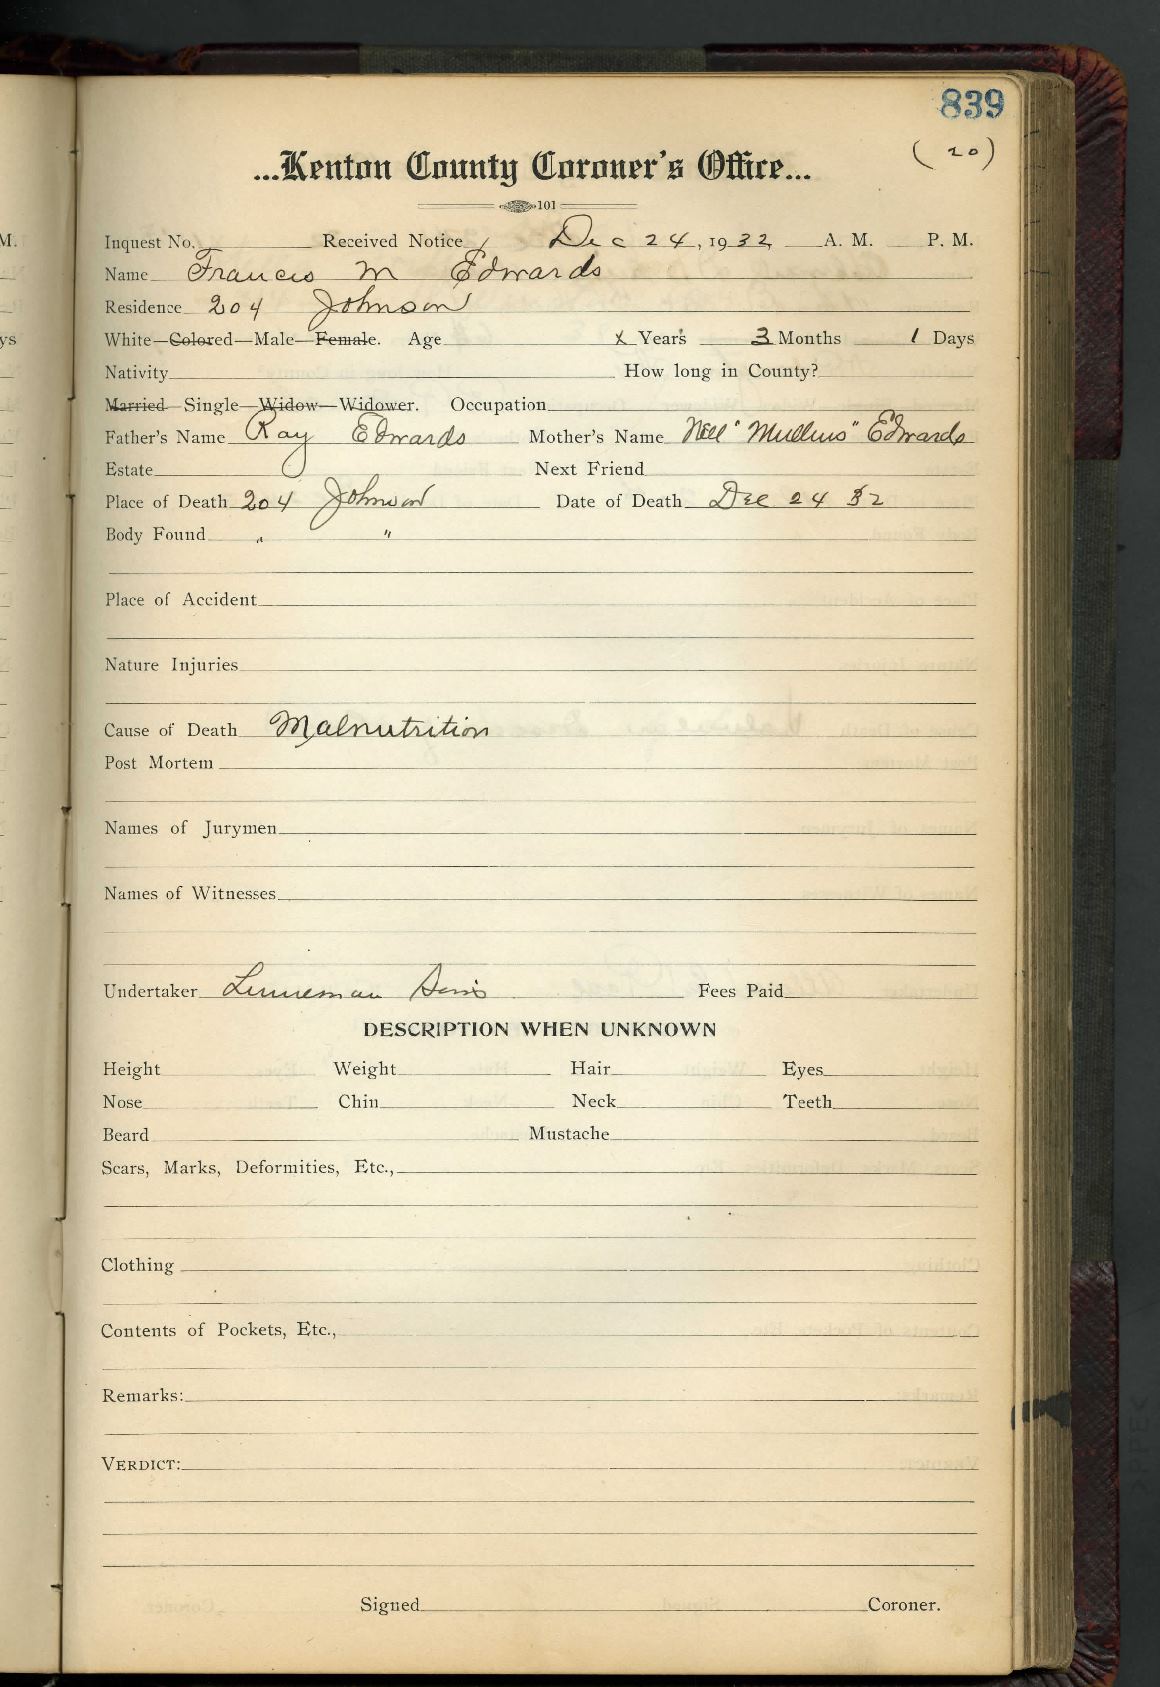 839
( 20 )
...Kenton County Coroner's Office...
101
Inquest No. Received Notice Dec 24, 1932 A. M. P. M.
Name Francis M Edwards
Residence 204 Johnson
White—Colored—Male—Female. Age x Years 3 Months 1 Days
Nativity How long in County?
Married Single—Widow—Widower. Occupation
Father's Name Ray Edwards Mother's Name Nell "Mullins" Edwards
Estate Next Friend
Place of Death 204 Johnson Date of Death Dec 24 32
Body Found " "
Place of Accident
Nature Injuries
Cause of Death Malnutrition
Post Mortem
Names of Jurymen
Names of Witnesses
Undertaker Linneman Sons Fees Paid
DESCRIPTION WHEN UNKNOWN
Height Weight Hair Eyes
Nose Chin Neck Teeth
Beard Mustache
Scars, Marks, Deformities, Etc.,
Clothing
Contents of Pockets, Etc.,
Remarks:
VERDICT:
Signed Coroner.